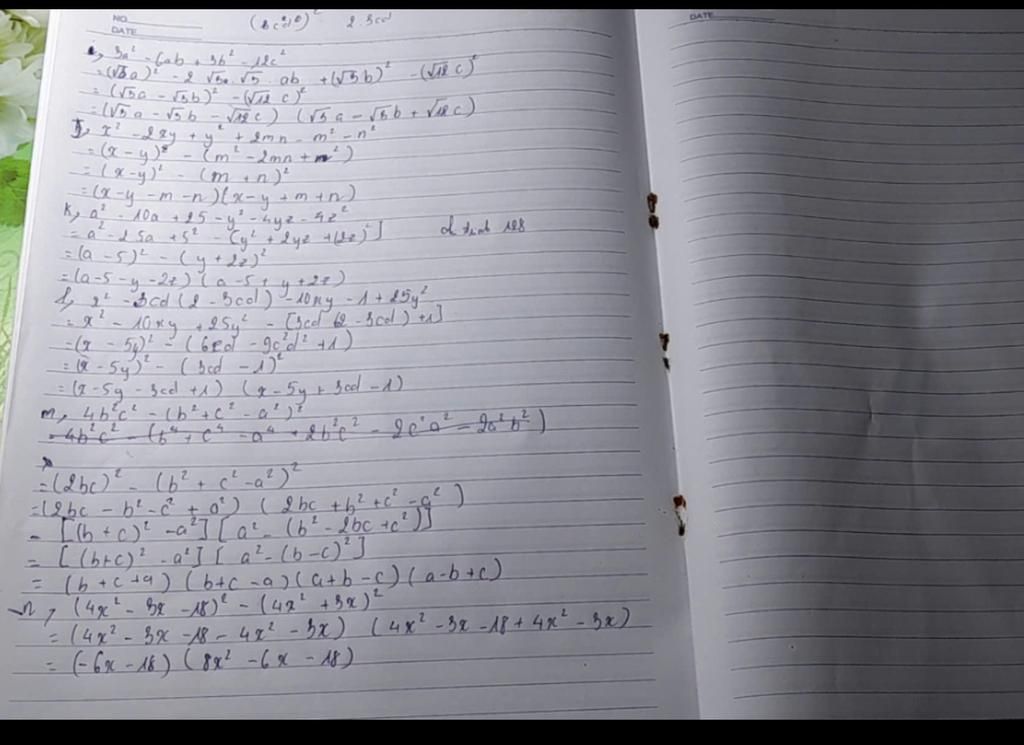 NO.
DATE
DATE
(3cd)² 2.3cd
i, 3a² - 6ab + 3b² - 12c²
= (√3a)² - 2 √3 . √3 ab + (√3b)² - (√12 c)²
= (√3a - √3b)² - (√12 c)²
= (√3a - √3b - √12 c) (√3a - √3b + √12 c)
x² - 2xy + y² + 2mn - m² - n²
= (x - y)² - (m² - 2mn + n²)
= (x - y)² - (m + n)²
= (x - y - m - n)(x - y + m + n)
k, a² - 10a + 25 - y² - 4yz - 4z²
= a² - 2 5a + 5² - [y² + 2yz + (2z)²]
= (a - 5)² - (y + 2z)²
= (a - 5 - y - 2z) (a - 5 + y + 2z)
l, x² - 3cd (2 - 3cd) - 10xy - 1 + 25y²
= x² - 10xy + 25y² - [3cd (2 - 3cd) + 1]
= (x - 5y)² - (6cd - 9c²d² + 1)
= (x - 5y)² - (3cd - 1)²
= (x - 5y - 3cd + 1) (x - 5y + 3cd - 1)
m, 4b²c² - (b² + c² - a²)²
= 4b²c² - (b⁴ + c⁴ - a⁴ + 2b²c² - 2c²a² - 2a²b²)
= (2bc)² - (b² + c² - a²)²
= (2bc - b² - c² + a²) (2bc + b² + c² - a²)
= [(b + c)² - a²] [a² - (b² - 2bc + c²)]
= [(b+c)² - a²] [a² - (b - c)²]
= (b + c + a) (b + c - a) (a + b - c) (a - b + c)
n, (4x² - 3x - 18)² - (4x² + 3x)²
= (4x² - 3x - 18 - 4x² - 3x) (4x² - 3x - 18 + 4x² - 3x)
= (-6x - 18) (8x² - 6x - 18)